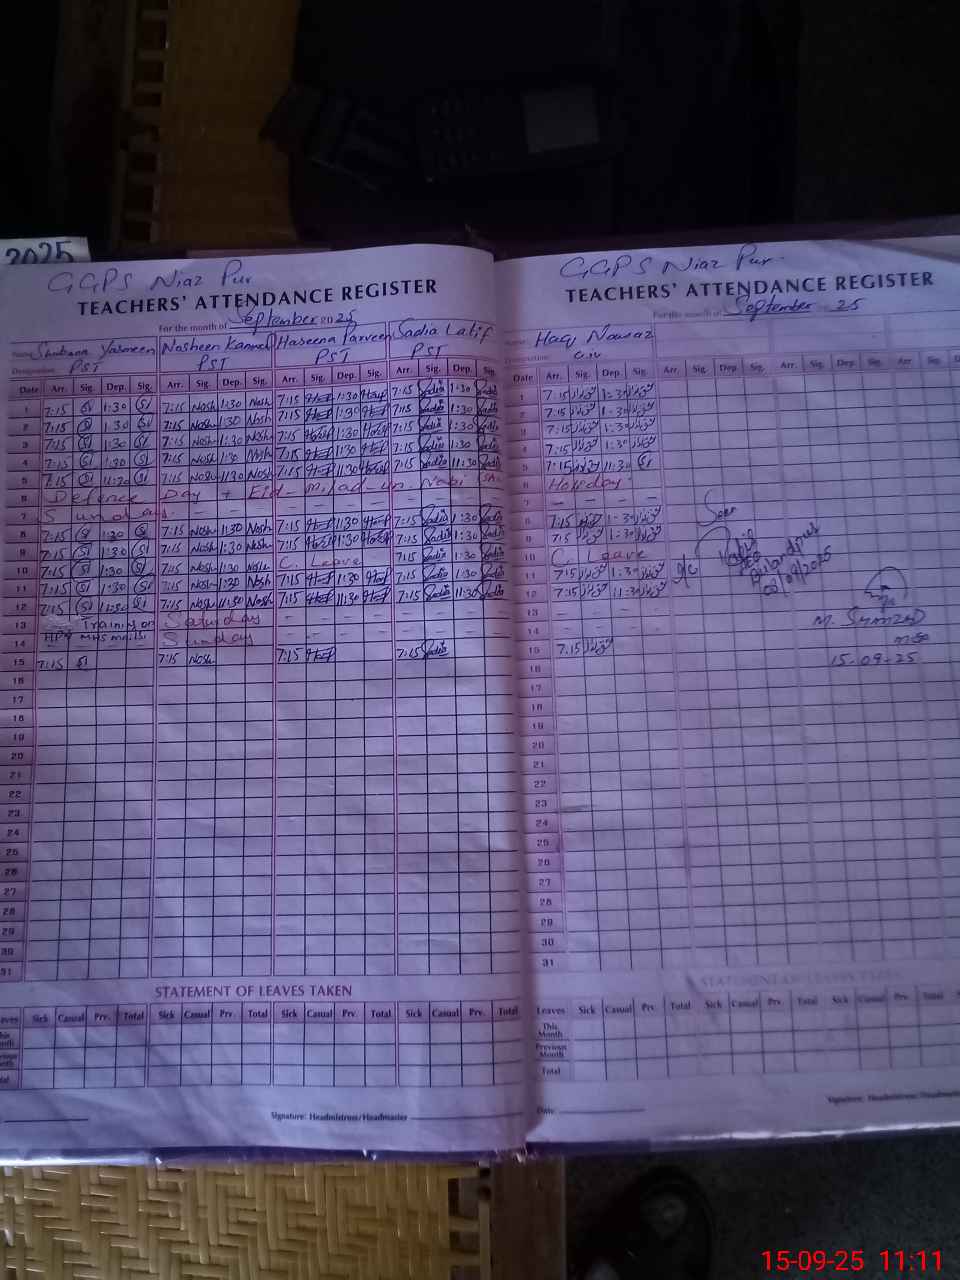 2025
GGPS Niaz Pur
TEACHERS' ATTENDANCE REGISTER
For the month of September 2025
Name Shubana Yasmeen Nosheen Kanwal Haseena Parveen Sadia Latif
Designation PST PST PST PST
Date Arr. Sig. Dep. Sig. Arr. Sig. Dep. Sig. Arr. Sig. Dep. Sig. Arr. Sig. Dep. Sig.
1 7:15 1:30 7:15 Nosh 1:30 Nosh 7:15 1:30 7:15 Sadia 1:30 Sadia
2 7:15 1:30 7:15 Nosh 1:30 Nosh 7:15 1:30 7:15 Sadia 1:30 Sadia
3 7:15 1:30 7:15 Nosh 1:30 Nosh 7:15 1:30 7:15 Sadia 1:30 Sadia
4 7:15 1:30 7:15 Nosh 1:30 Nosh 7:15 1:30 7:15 Sadia 1:30 Sadia
5 7:15 11:30 7:15 Nosh 11:30 Nosh 7:15 11:30 7:15 Sadia 11:30 Sadia
6 Defence Day + Eid-Milad-un-Nabi
7 Sunday
8 7:15 1:30 7:15 Nosh 1:30 Nosh 7:15 1:30 7:15 Sadia 1:30 Sadia
9 7:15 1:30 7:15 Nosh 1:30 Nosh 7:15 1:30 7:15 Sadia 1:30 Sadia
10 7:15 1:30 7:15 Nosh 1:30 Nosh C. Leave 7:15 Sadia 1:30 Sadia
11 7:15 1:30 7:15 Nosh 1:30 Nosh 7:15 1:30 7:15 Sadia 1:30 Sadia
12 7:15 11:30 7:15 Nosh 11:30 Nosh 7:15 11:30 7:15 Sadia 11:30 Sadia
13 Training on Saturday
14 Sunday
15 7:15 7:15 Nosh 7:15 7:15 Sadia
16
17
18
19
20
21
22
23
24
25
26
27
28
29
30
31
STATEMENT OF LEAVES TAKEN
Leaves Sick Casual Prv. Total Sick Casual Prv. Total Sick Casual Prv. Total Sick Casual Prv. Total
This Month
Previous Month
Total
Signature: Headmistress/Headmaster
GGPS Niaz Pur
TEACHERS' ATTENDANCE REGISTER
For the month of September 2025
Name Haq Nawaz
Designation
Date Arr. Sig. Dep. Sig. Arr. Sig. Dep. Sig. Arr. Sig. Dep. Sig. Arr. Sig.
1 7:15 1:30
2 7:15 1:30
3 7:15 1:30
4 7:15 1:30
5 7:15 11:30
6 Holiday
7
8 7:15 1:30
9 7:15 1:30
10 C. Leave
11 7:15 1:30
12 7:15 11:30
13
14
15 7:15
16
17
18
19
20
21
22
23
24
25
26
27
28
29
30
31
Seen
M. Shahzad
15-09-25
STATEMENT OF LEAVES TAKEN
Leaves Sick Casual Prv. Total Sick Casual Prv. Total Sick Casual Prv. Total
This Month
Previous Month
Total
Date:
Signature: Headmistress/Headmaster
15-09-25 11:11